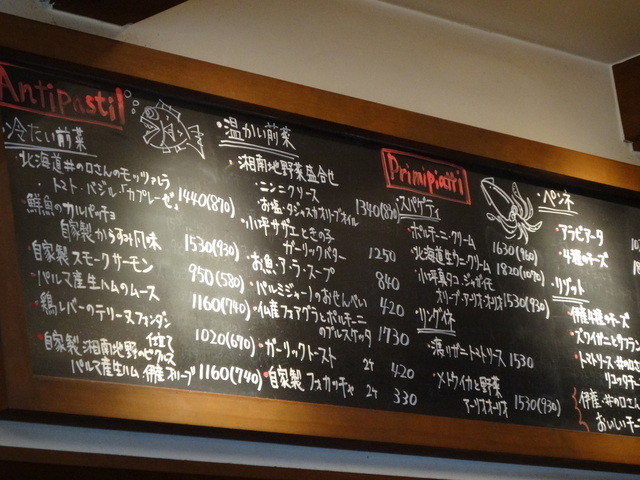 Antipasti
・冷たい前菜
・北海道井の口さんのモッツァレラ
トマト・バジル「カプレーゼ」 1440(870)
・鮮魚のカルパッチョ
自家製からすみ風味 1530(930)
・自家製スモークサーモン 950(580)
・パルマ産生ハムのムース 1160(740)
・鶏レバーのテリーヌ フォンダン仕立て 1020(670)
・自家製 湘南地野のピクルス
パルマ産生ハム、伊産オリーブ 1160(740)
・温かい前菜
・湘南地野菜盛合せ
ニンニクソース
お塩・タジャスカオリーブオイル 1340(830)
・小坪サザエときの子
ガーリックバター 1250
・お魚・ア・ラ・スープ 840
・パルミジャーノのおせんべい 420
・仏産フォアグラとポルチーニ
のブルスケッタ 1730
・ガーリックトースト 2ケ 420
・自家製フォカッチャ 2ケ 330
Primipiatti
・スパゲティ
・ポルチーニ・クリーム 1630(960)
・北海道生ウニクリーム 1820(1070)
・小坪真タコ・ジャガイモ
オリーブ・アーリオ・オーリオ 1530(930)
・リングイネ
・渡リガニトマトソース 1530
・メドウイカと野菜
アーリオオーリオ 1530(930)
・ペンネ
・アラビアータ
・4種のチーズ
・リゾット
・伊産4種のチーズ
・ズワイガニと
・トマトソース・井の口さん
リコッタチ
伊産・井の口さん
おいしいチー